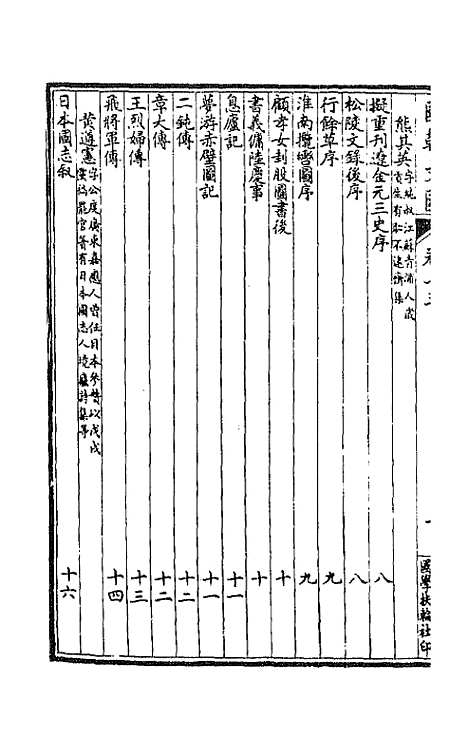 熊其英字純叔江蘇青浦人歲貢生有恥不逮齋集
擬重刊遼金元三史序 八
松陵文錄後序 八
行餘草序 九
淮南攬雪圖序 九
顧孝女刲股圖書後 十
書義傭陸慶事 十
息廬記 十一
夢游赤壁圖記 十一
二鈍傳 十二
章大傳 十二
王烈婦傳 十三
飛將軍傳 十四
黄遵憲字公度廣東嘉應人曾任日本參贊以戊戌黨禍罷官著有日本國志人境廬詩集等
日本國志敘 十六
國學扶輪社印